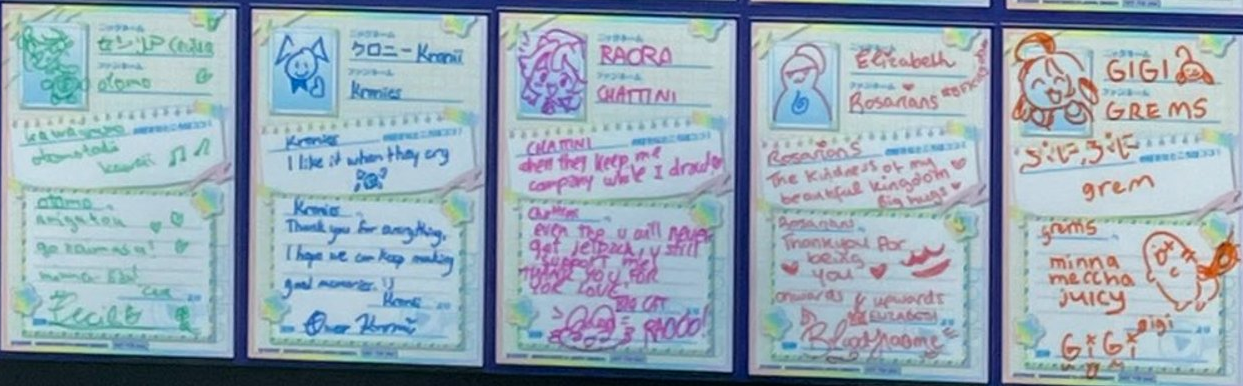 ニックネーム
セシリア Cecilia
ファンネーム
otomo
otomotachi
kawaii
otomo
arigatou
go zaimasu!
Cecilia
ニックネーム
クロニー Kronii
ファンネーム
Kronies
Kronies
I like it when they cry
Kronies
Thank you for everything,
I hope we can keep making
good memories.
Kronii
Ouro Kronii
ニックネーム
RAORA
ファンネーム
CHATTINI
CHATTINI
when they keep me
company while I draw
Chattini
even tho u will never
get jetpack, u still
support me!
THANK YOU FOR
YOR LOVE!
BIG CAT
RAOO!
ニックネーム
Elizabeth
ファンネーム
Rosarians
Rosarians
The kindness of my
beautiful kingdom
Big hugs
Rosarians
Thank you for
being
you
onwards & upwards
ELIZABETH
Bloodflame
ニックネーム
GIGI
ファンネーム
GREMS
grem
grems
minna
meccha
juicy
gigi
GiGi